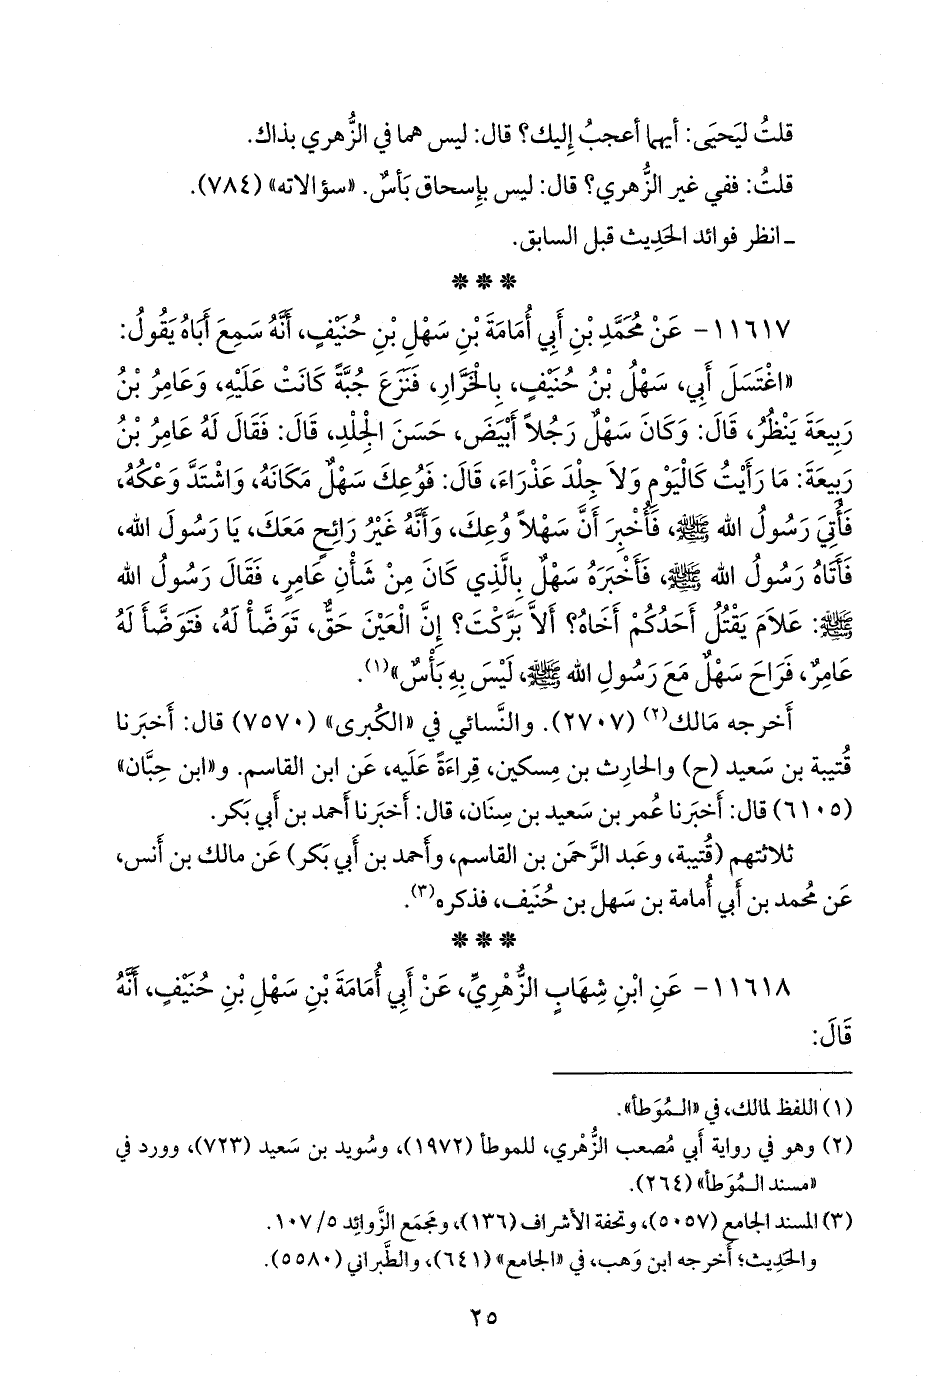 قلتُ ليَحيَى: أيهما أعجبُ إِليك؟ قال: ليس هما في الزُّهري بذاك.
قلتُ: ففي غير الزُّهري؟ قال: ليس بإِسحاق بَأسٌ. «سؤالاته» (٧٨٤).
ـ انظر فوائد الحَدِيث قبل السابق.
* * *
١١٦١٧- عَنْ مُحَمَّدِ بْنِ أَبِي أُمَامَةَ بْنِ سَهْلِ بْنِ حُنَيْفٍ، أَنَّهُ سَمِعَ أَبَاهُ يَقُولُ:
«اغْتَسَلَ أَبِي، سَهْلُ بْنُ حُنَيْفٍ، بِالْخَرَّارِ، فَنَزَعَ جُبَّةً كَانَتْ عَلَيْهِ، وَعَامِرُ بْنُ
رَبِيعَةَ يَنْظُرُ، قَالَ: وَكَانَ سَهْلٌ رَجُلاً أَبْيَضَ، حَسَنَ الْجِلْدِ، قَالَ: فَقَالَ لَهُ عَامِرُ بْنُ
رَبِيعَةَ: مَا رَأَيْتُ كَالْيَوْمِ وَلاَ جِلْدَ عَذْرَاءَ، قَالَ: فَوُعِكَ سَهْلٌ مَكَانَهُ، وَاشْتَدَّ وَعْكُهُ،
فَأُتِيَ رَسُولُ الله ﷺ، فَأُخْبِرَ أَنَّ سَهْلاً وُعِكَ، وَأَنَّهُ غَيْرُ رَائِحٍ مَعَكَ، يَا رَسُولَ الله،
فَأَتَاهُ رَسُولُ الله ﷺ، فَأَخْبَرَهُ سَهْلٌ بِالَّذِي كَانَ مِنْ شَأْنِ عَامِرٍ، فَقَالَ رَسُولُ الله
ﷺ: عَلاَمَ يَقْتُلُ أَحَدُكُمْ أَخَاهُ؟ أَلاَّ بَرَّكْتَ؟ إِنَّ الْعَيْنَ حَقٌّ، تَوَضَّأْ لَهُ، فَتَوَضَّأَ لَهُ
عَامِرٌ، فَرَاحَ سَهْلٌ مَعَ رَسُولِ الله ﷺ، لَيْسَ بِهِ بَأْسٌ»(١).
أَخرجه مَالك(٢) (٢٧٠٧). والنَّسائي في «الكُبرى» (٧٥٧٠) قال: أَخبَرنا
قُتيبة بن سَعيد (ح) والحارِث بن مِسكين، قِراءَةً عَلَيه، عَن ابن القاسم. و«ابن حِبَّان»
(٦١٠٥) قال: أَخبَرنا عُمر بن سَعيد بن سِنَان، قال: أَخبَرنا أَحمد بن أَبي بَكر.
ثلاثتهم (قُتيبة، وعَبد الرَّحمَن بن القاسم، وأَحمد بن أَبي بَكر) عَن مالك بن أَنس،
عَن مُحمد بن أَبي أُمامة بن سَهل بن حُنَيف، فذكره(٣).
* * *
١١٦١٨- عَنِ ابْنِ شِهَابٍ الزُّهْرِيِّ، عَنْ أَبِي أُمَامَةَ بْنِ سَهْلِ بْنِ حُنَيْفٍ، أَنَّهُ
قَالَ:
(١) اللفظ لمالك، في «الـمُوَطأ».
(٢) وهو في رواية أَبي مُصعب الزُّهْري، للموطأ (١٩٧٢)، وسُويد بن سَعيد (٧٢٣)، وورد في
«مسند الـمُوَطأ» (٢٦٤).
(٣) المسند الجامع (٥٠٥٧)، وتحفة الأشراف (١٣٦)، ومَجمَع الزَّوائِد ٥/ ١٠٧.
والحَدِيث؛ أَخرجه ابن وَهب، في «الجامع» (٦٤١)، والطَّبراني (٥٥٨٠).
٢٥